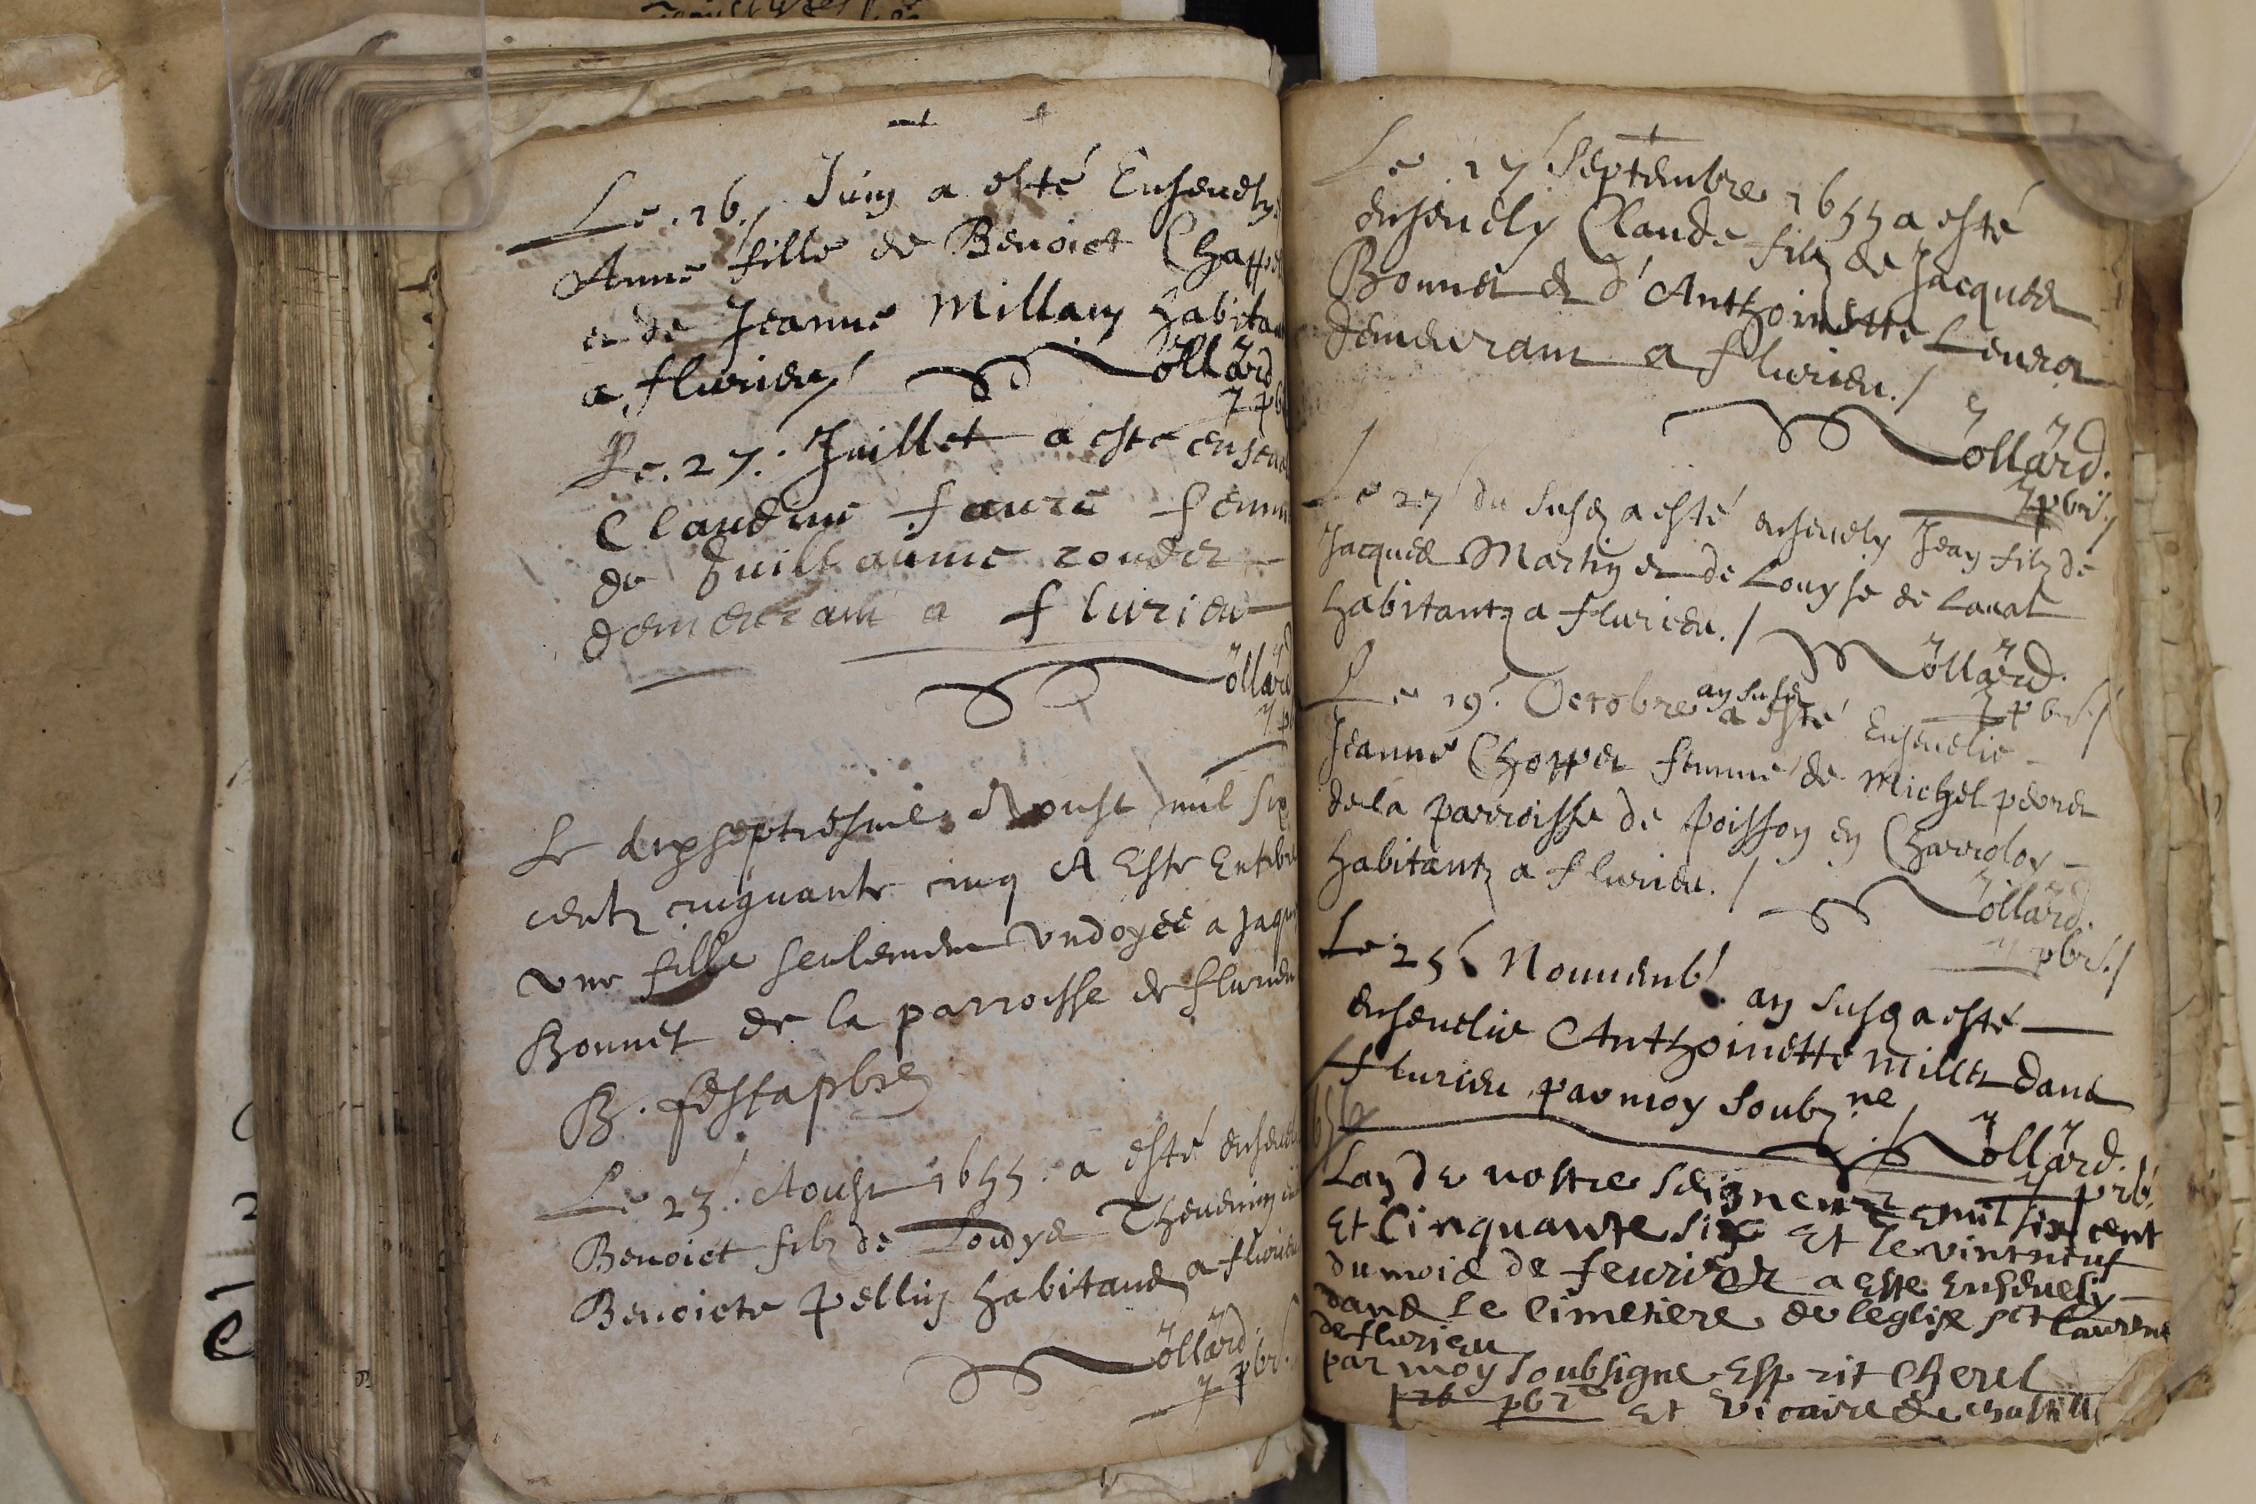 Le. 26./ Juin a esté Enseuely
Anne fille de Benoict Chappe
et de Jeanne Millan habita
a flurieu/ Jollard
pb
Le. 27. Juillet a esté enseu
Claudine faure femm
de Guillaume rondet
demeurant a flurieu
Jollard
Le dixseptiesme Aoust mil six
centz cinquante cinq A Este Enter
une fille seulement Undoyée a Jaqu
Bonnet de la parroisse de flurieu
B. festa pbre
Le 23. Aoust 1655. a esté enseuel
Benoict filz de Loüys Theuenin
Benoicte Pellin habitans a flurieu
Jollard. pbr.
Le 17 Septembre 1655 a esté
enseuely Claude filz de Jacques
Bonnet et d'Anthoinette Leurat
demeurant a flurieu./
Jollard.
pbr./
Le 27 du susd a esté enseuely Jean filz de
Jacques Martin et de Louyse de Laual
habitantz a flurieu./ Jollard.
pbr./
Le 19. Octobre an susd a esté Enseuelie
Jeanne Choppet femme de Michel peuret
de la Parroisse de Poisson en Charrolox
habitantz a flurieu./
Jollard.
pbr./
Le 25 Nouuemb. an susd a esté
enseuelie Anthoinette Millet dans
flurieu par moy Soubz.ne./
Jollard.
prb.
Lan de nostre seigneur mil six cent
Et Cinquante six Et le vintneuf
du mois de feurier a este Enseuely
dans le cimetiere de leglise sct Laurens
de flurieu
par moy soubsigne Esprit Cherel
pbre Et Vicaire de